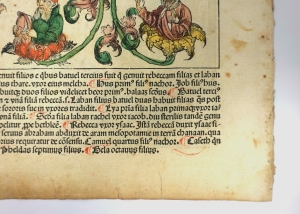 genuit filios e qbus batuel tercius fuit q genuit rebeccam filias et laban
us thare. vxor eius melcha. Hus prim⁹ fili⁹ nachor. Job fili⁹ hus.
buitq duos filios videlicet beor prius. balias secus. Batuel terci⁹
n z vnā filiā rebeccā. s. Laban filius batuel duas habuit filias qs post
sorores suc in vxores tradidit. Lya prīa filia laban primogenita
nā filiā. Scda filia laban rachel vxor iacob. diu sterilis tandē genu
peltur ppe betleē. Rebecca vxor ysaac. Istā rebeccā duxit ysaac fi-
seruus abraham abduxit de aram mesopotamie in terrā chanaan. qua
nos requiratur de cōsensu. Camuel quartus fili⁹ nachor. Caseth qn
Pheldas septimus filius. Bela octauus filius.